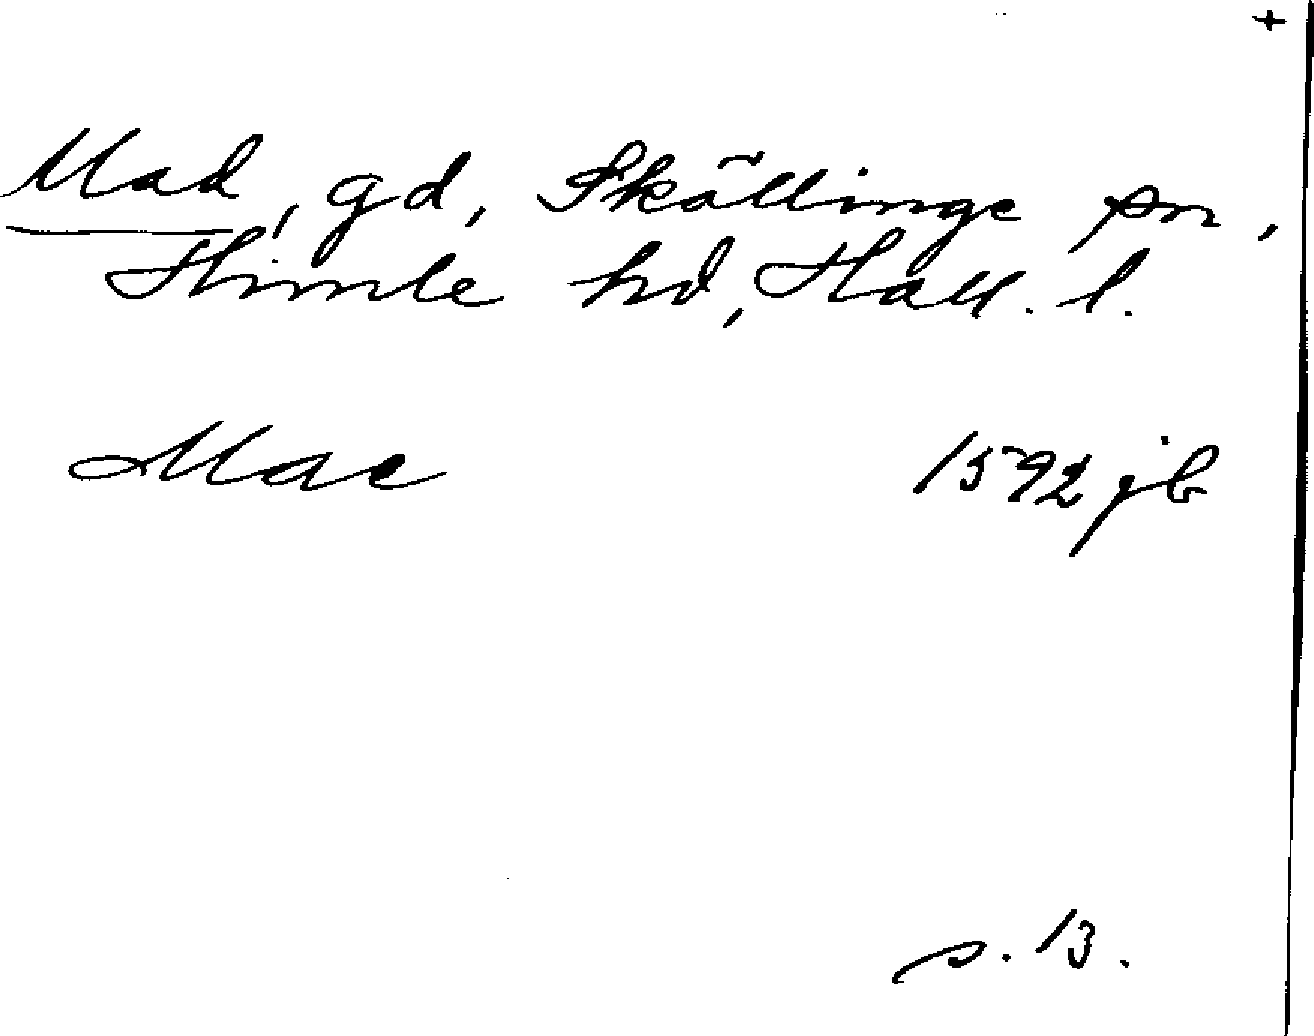 +
Mad, gd, Skällinge sn,
Himle hd, Hall. l.
Mae 1592 jb
s. 13.